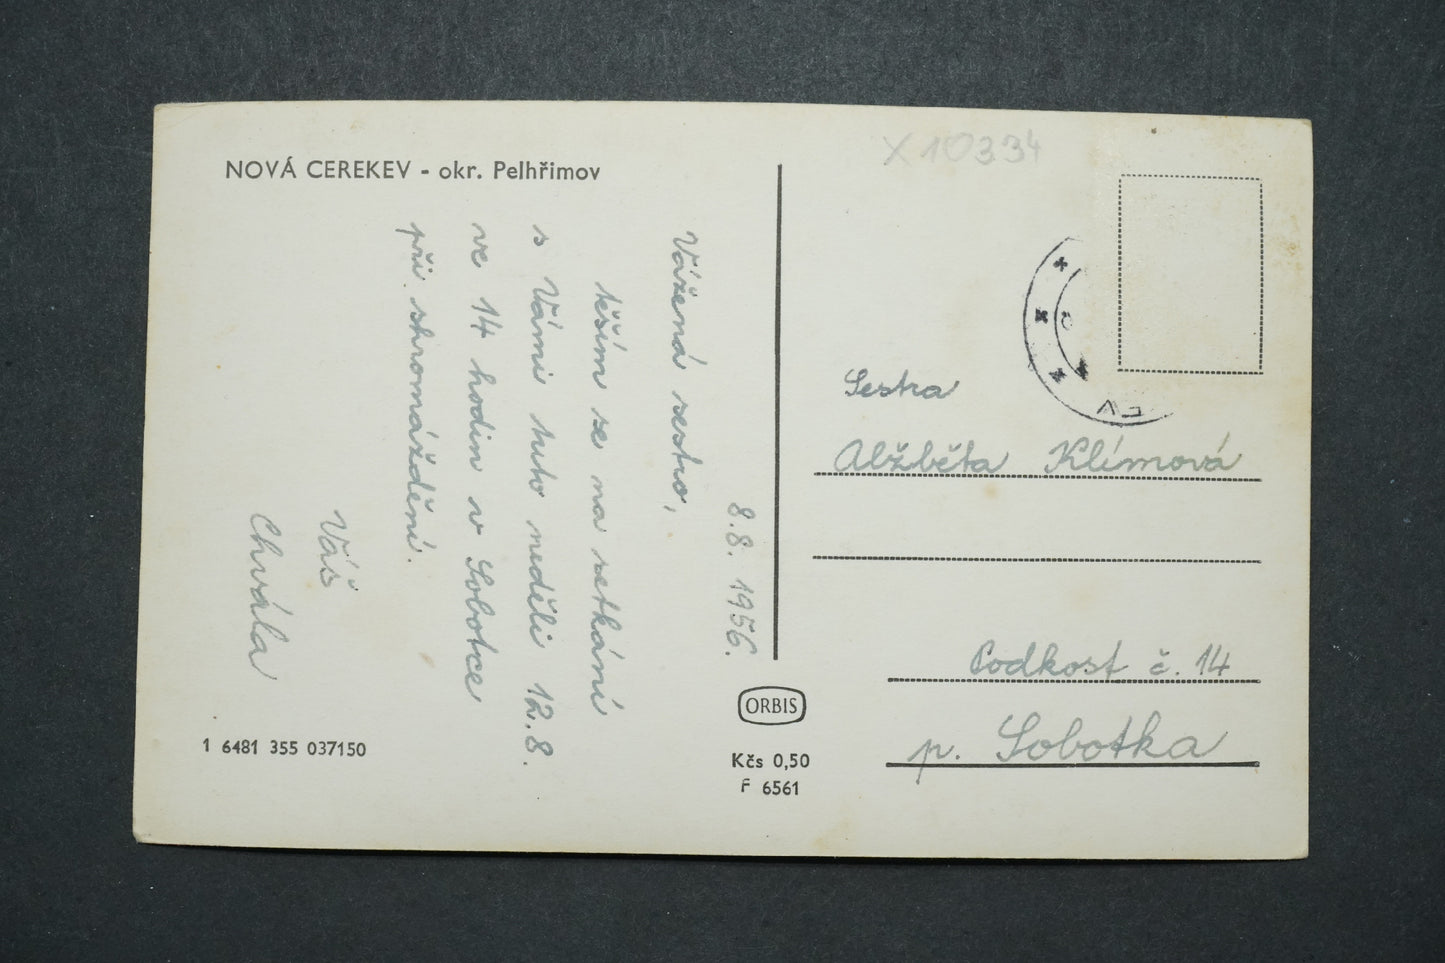 NOVÁ CEREKEV - okr. Pelhřimov
8.8. 1956.
Vážená sestro,
těším se na setkání
s Vámi tuto neděli 12.8.
ve 14 hodin v Sobotce
při shromáždění.
Váš
Chvála
1 6481 355 037150
ORBIS
Kčs 0,50
F 6561
X10334
Sestra
Alžběta Klímová
Podkost č. 14
p. Sobotka